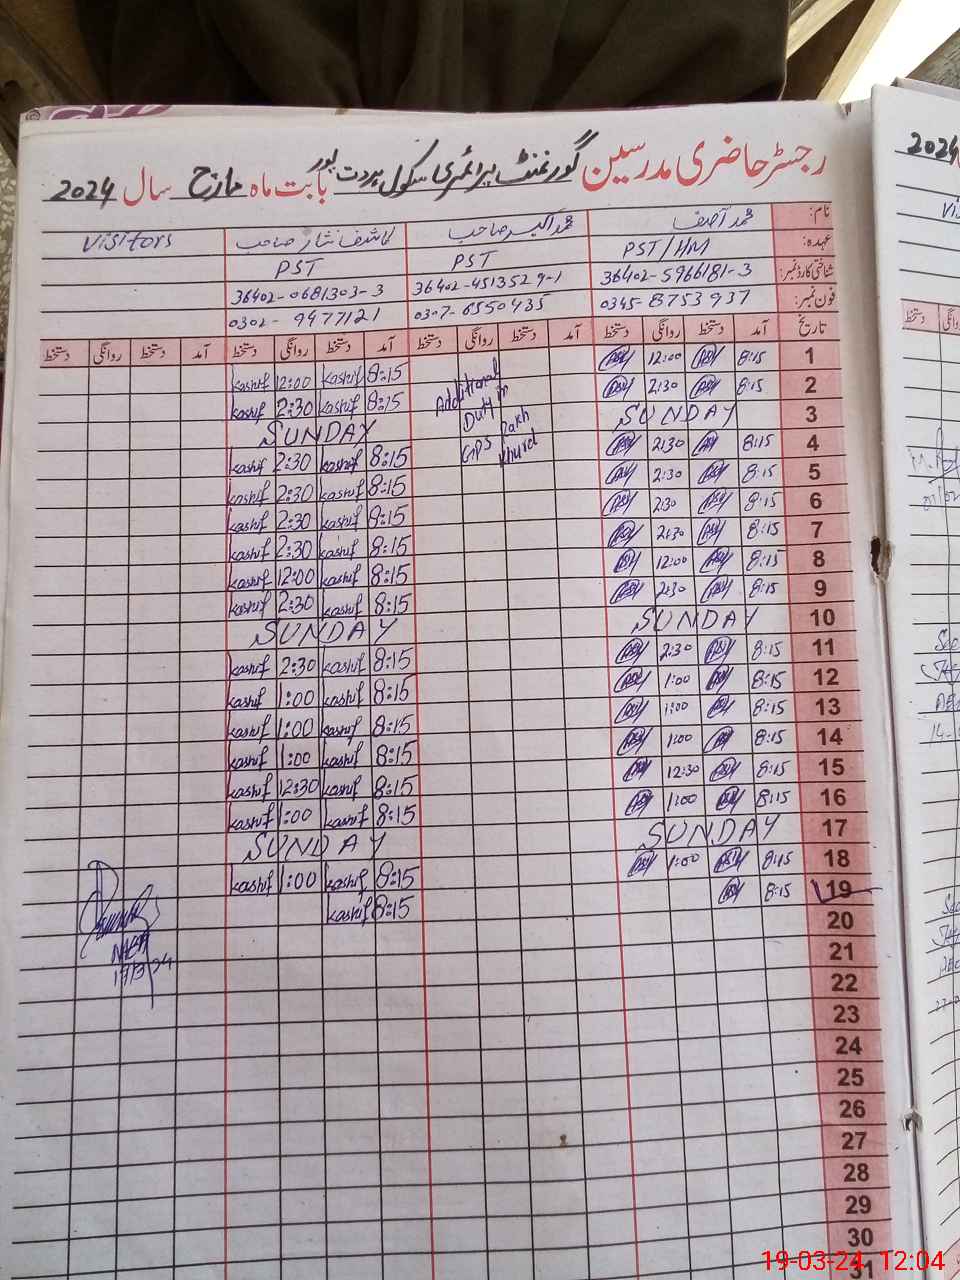 رجسٹر حاضری مدرسین گورنمنٹ پرائمری سکول پور بابت ماہ مارچ سال 2024
نام: محمد آصف محمد اکبر صاحب کاشف نثار صاحب Visitors
عہدہ: PST/HM PST PST
شناختی کارڈ نمبر: 36402-5966181-3 36402-4513529-1 36402-0681303-3
فون نمبر: 0345-8753937 0307-6550435 0302-9477121
تاریخ آمد دستخط روانگی دستخط آمد دستخط روانگی دستخط آمد دستخط روانگی دستخط آمد دستخط روانگی دستخط
1 8:15 12:00 8:15 Kashif 12:00 Kashif
2 8:15 2:30 8:15 Kashif 2:30 Kashif
3 SUNDAY SUNDAY
4 8:15 2:30 8:15 Kashif 2:30 Kashif
5 8:15 2:30 8:15 Kashif 2:30 Kashif
6 8:15 2:30 8:15 Kashif 2:30 Kashif
7 8:15 2:30 8:15 Kashif 2:30 Kashif
8 8:15 12:00 8:15 Kashif 12:00 Kashif
9 8:15 2:30 8:15 Kashif 2:30 Kashif
10 SUNDAY SUNDAY
11 8:15 2:30 8:15 Kashif 2:30 Kashif
12 8:15 1:00 8:15 Kashif 1:00 Kashif
13 8:15 1:00 8:15 Kashif 1:00 Kashif
14 8:15 1:00 8:15 Kashif 1:00 Kashif
15 8:15 12:30 8:15 Kashif 12:30 Kashif
16 8:15 1:00 8:15 Kashif 1:00 Kashif
17 SUNDAY SUNDAY
18 8:15 1:00 8:15 Kashif 1:00 Kashif
19 8:15 8:15 Kashif
20
21
22
23
24
25
26
27
28
29
30
31
Additional
Duty in
GPS
Khurd
2024
19-03-24, 12:04